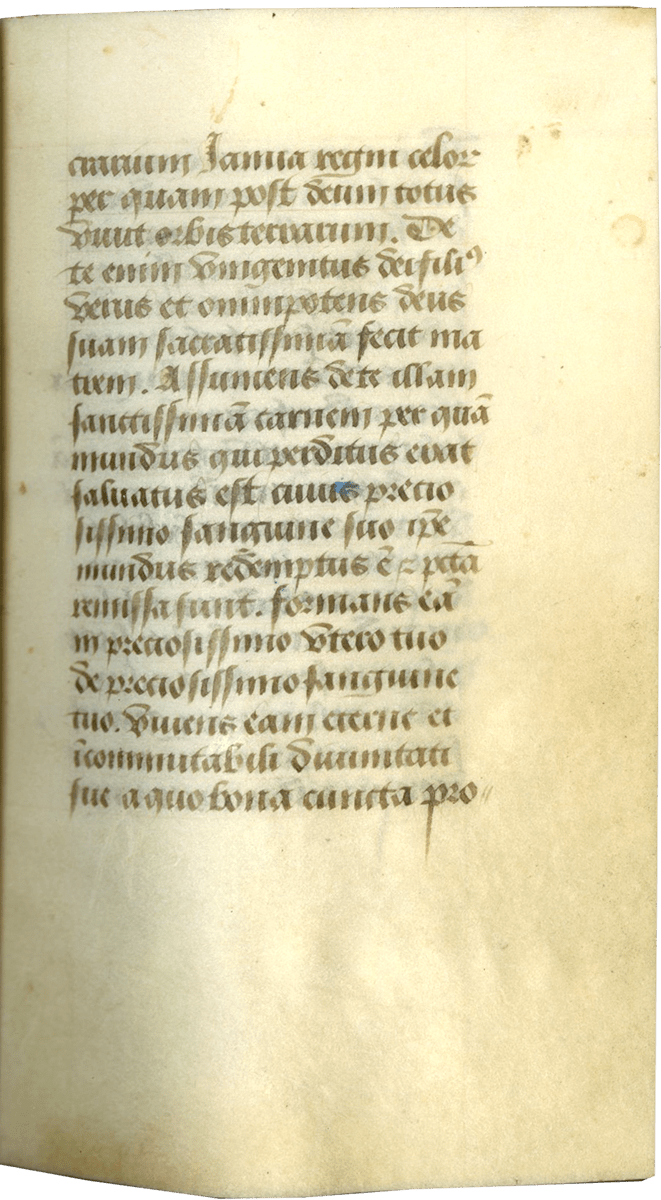 ctuarium Janua regni celor
per quam post deum totus
viuit orbis terrarum. De
te enim vnigenitus dei filiꝰ
verus et omnipotens deus
suam sacratissimā fecit ma
trem. Assumens de te illam
sanctissimā carnem per quā
mundus qui perditus erat
saluatus est cuius precio
sissimo sanguine suo ip̄e
mundus redemptus ē ⁊ pctā
remissa sunt. formans eā
in preciosissimo vtero tuo
de preciosissimo sanguine
tuo. vniens eam eterne et
īcommutabili diuinitati
sue a quo bona cuncta pro//